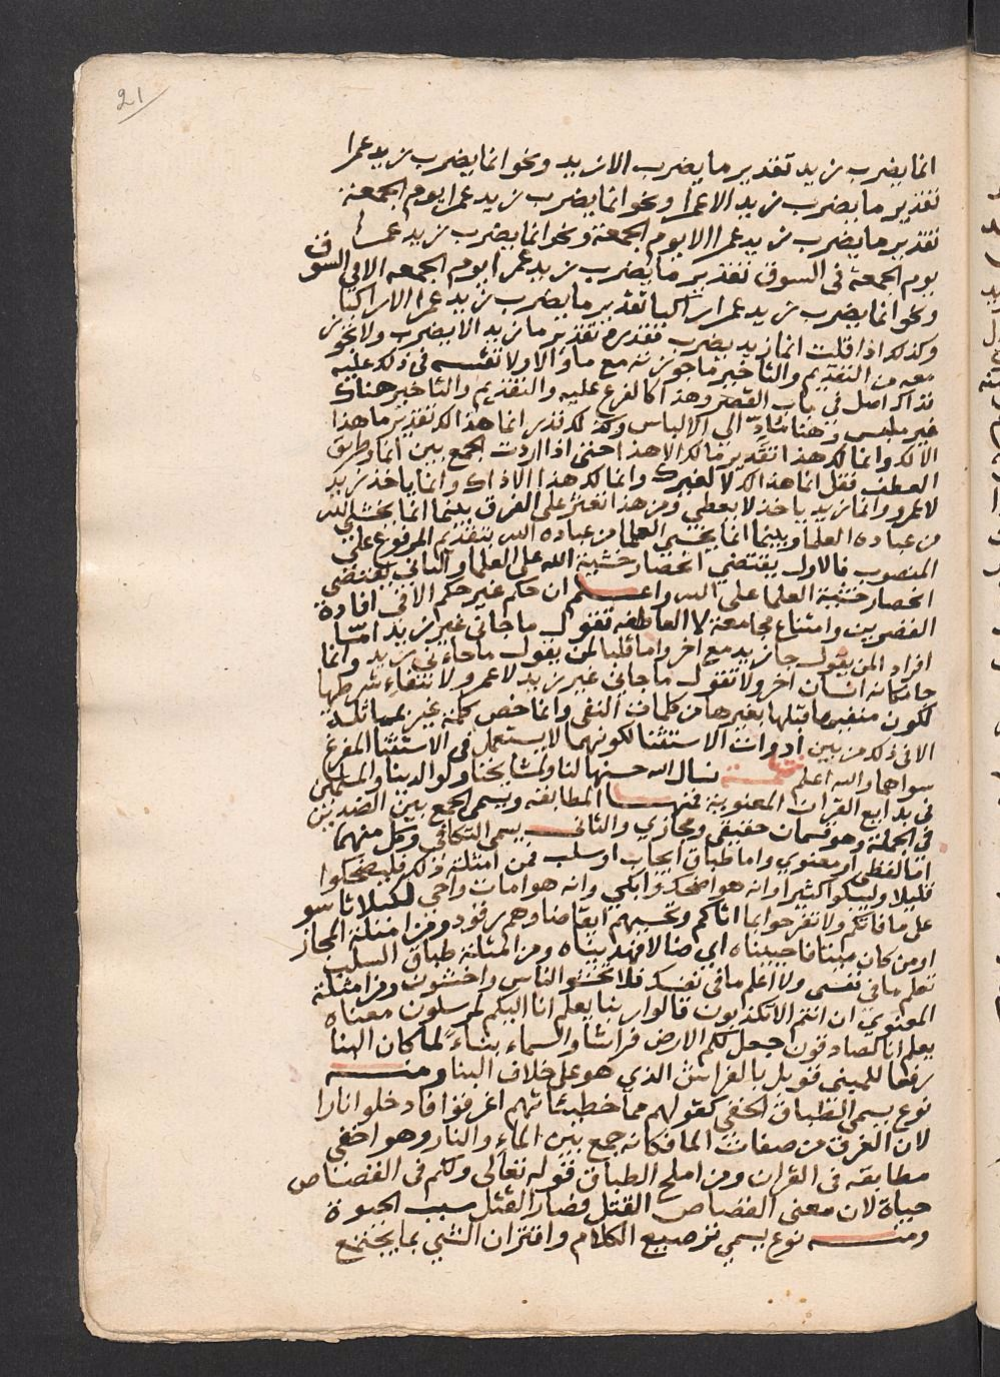 21
انما يضرب زيد تقدير ما يضرب الا زيد ونحو انما يضرب زيد عمرا
تقدير ما يضرب زيد الا عمرا ونحو انما يضرب زيد عمرا يوم الجمعة
تقدير ما يضرب زيد عمرا الا يوم الجمعة ونحو انما يضرب زيد عمرا
يوم الجمعة في السوق تقدير ما يضرب زيد عمرا يوم الجمعه الا في السوق
ونحو انما يضرب زيد عمرا راكبا تقدير ما يضرب زيد عمرا الا راكبا
وكذلك اذا قلت انما زيد يضرب فقدره تقدير ما زيد الا يضرب ولا تجوز
معه من التقديم والتاخير ما جوزته مع ما والا ولا تقسه في ذلك عليه
فذاك اصل في باب القصر وهذا كالفرع عليه والتقديم والتاخير هناك
غير ملبس وهنا مؤدّ الي الالباس وكذلك قدر انما هذا لك تقدير ما هذا
الا لك وانما لك هذا تقدير ما لك الا هذا حتى اذا اردت الجمع بين انما وطريق
العطف فقل انما هذا لك لا لغيرك وانما لك هذا لا ذاك وانما ياخذ زيد
لا عمرو وانما زيد ياخذ لا يعطي ومن هذا تعثر على الفرق بينما انما يخشى الله
من عباده العلما وبينما انما يخشي العلما من عباده الله بتقديم المرفوع على
المنصوب فالاول يقتضي انحصار خشية الله على العلما والثاني يقتضي
انحصار خشية العلما على الله واعلم ان حكم غير حكم الا في افادة
القصرين وامتناع مجامعة لا العاطفه تقول ما جاني غير زيد امّا
افراد المن يقول جا زيد مع اخر واما قلبا لمن يقول ما جاء ني زيد وانما
جا مكانه انسان اخر ولا تقول ما جاني غير زيد لا عمرو لانتفاء شرطها
لكون منفيها قبلها بغيرها من كلمات النفي وانما خص كلمة غير بمماثلة
الا في ذلك من بين ادوات الاستثنا لكونهما لا يستعمل في الاستثنا المفرغ
سواهما والله اعلم نسال الله حسنها لنا ولمشايخنا ولوالدينا والمسلمين
في بدايع القران المعنوية فمنها المطابقه ويسمى الجمع بين الضدين
في الجملة وهو قسمان حقيقي ومجازي والثاني يسمى التكافي وكل منهما
اما لفظي او معنوي واما طباق ايجاب او سلب فمن امثلة ذلك فليضحكوا
قليلا وليبكوا كثيرا وانه هو اضحك وابكي وانه هو امات واحي لكيلا تاسو
على ما فاتكم ولا تفرحوا بما اتاكم وتحسبهم ايقاضا وهم رقود ومن امثلة المجاز
اومن كان ميتا فاحييناه اي ضالا فهديناه ومن امثلة طباق السلب
تعلم ما في نفسي ولا اعلم ما في نفسك فلا تخشوا الناس واخشون ومن امثلة
المعنوي ان انتم الا تكذبون قالوا ربنا يعلم انا اليكم لمرسلون معناه
يعلم انا لصادقون اجعل لكم الارض فراشا والسماء بناء لما كان البنا
رفعا للمبني قوبل بالفراش الذي هو على خلاف البنا ومنه
نوع يسمي الطباق الخفي كقولهم مما خطيئاتهم اغرقوا فادخلوا نارا
لان الغرق من صفات الما فكانه جمع بين الماء والنار وهو اخفي
مطابقه في القران ومن املح الطباق قوله تعالى ولكم في القصاص
حياة لان معنى القصاص القتل فصار القتل سبب الحيوة
ومنه نوع يسمي ترصيع الكلام واقتران الشي بما يجتمع